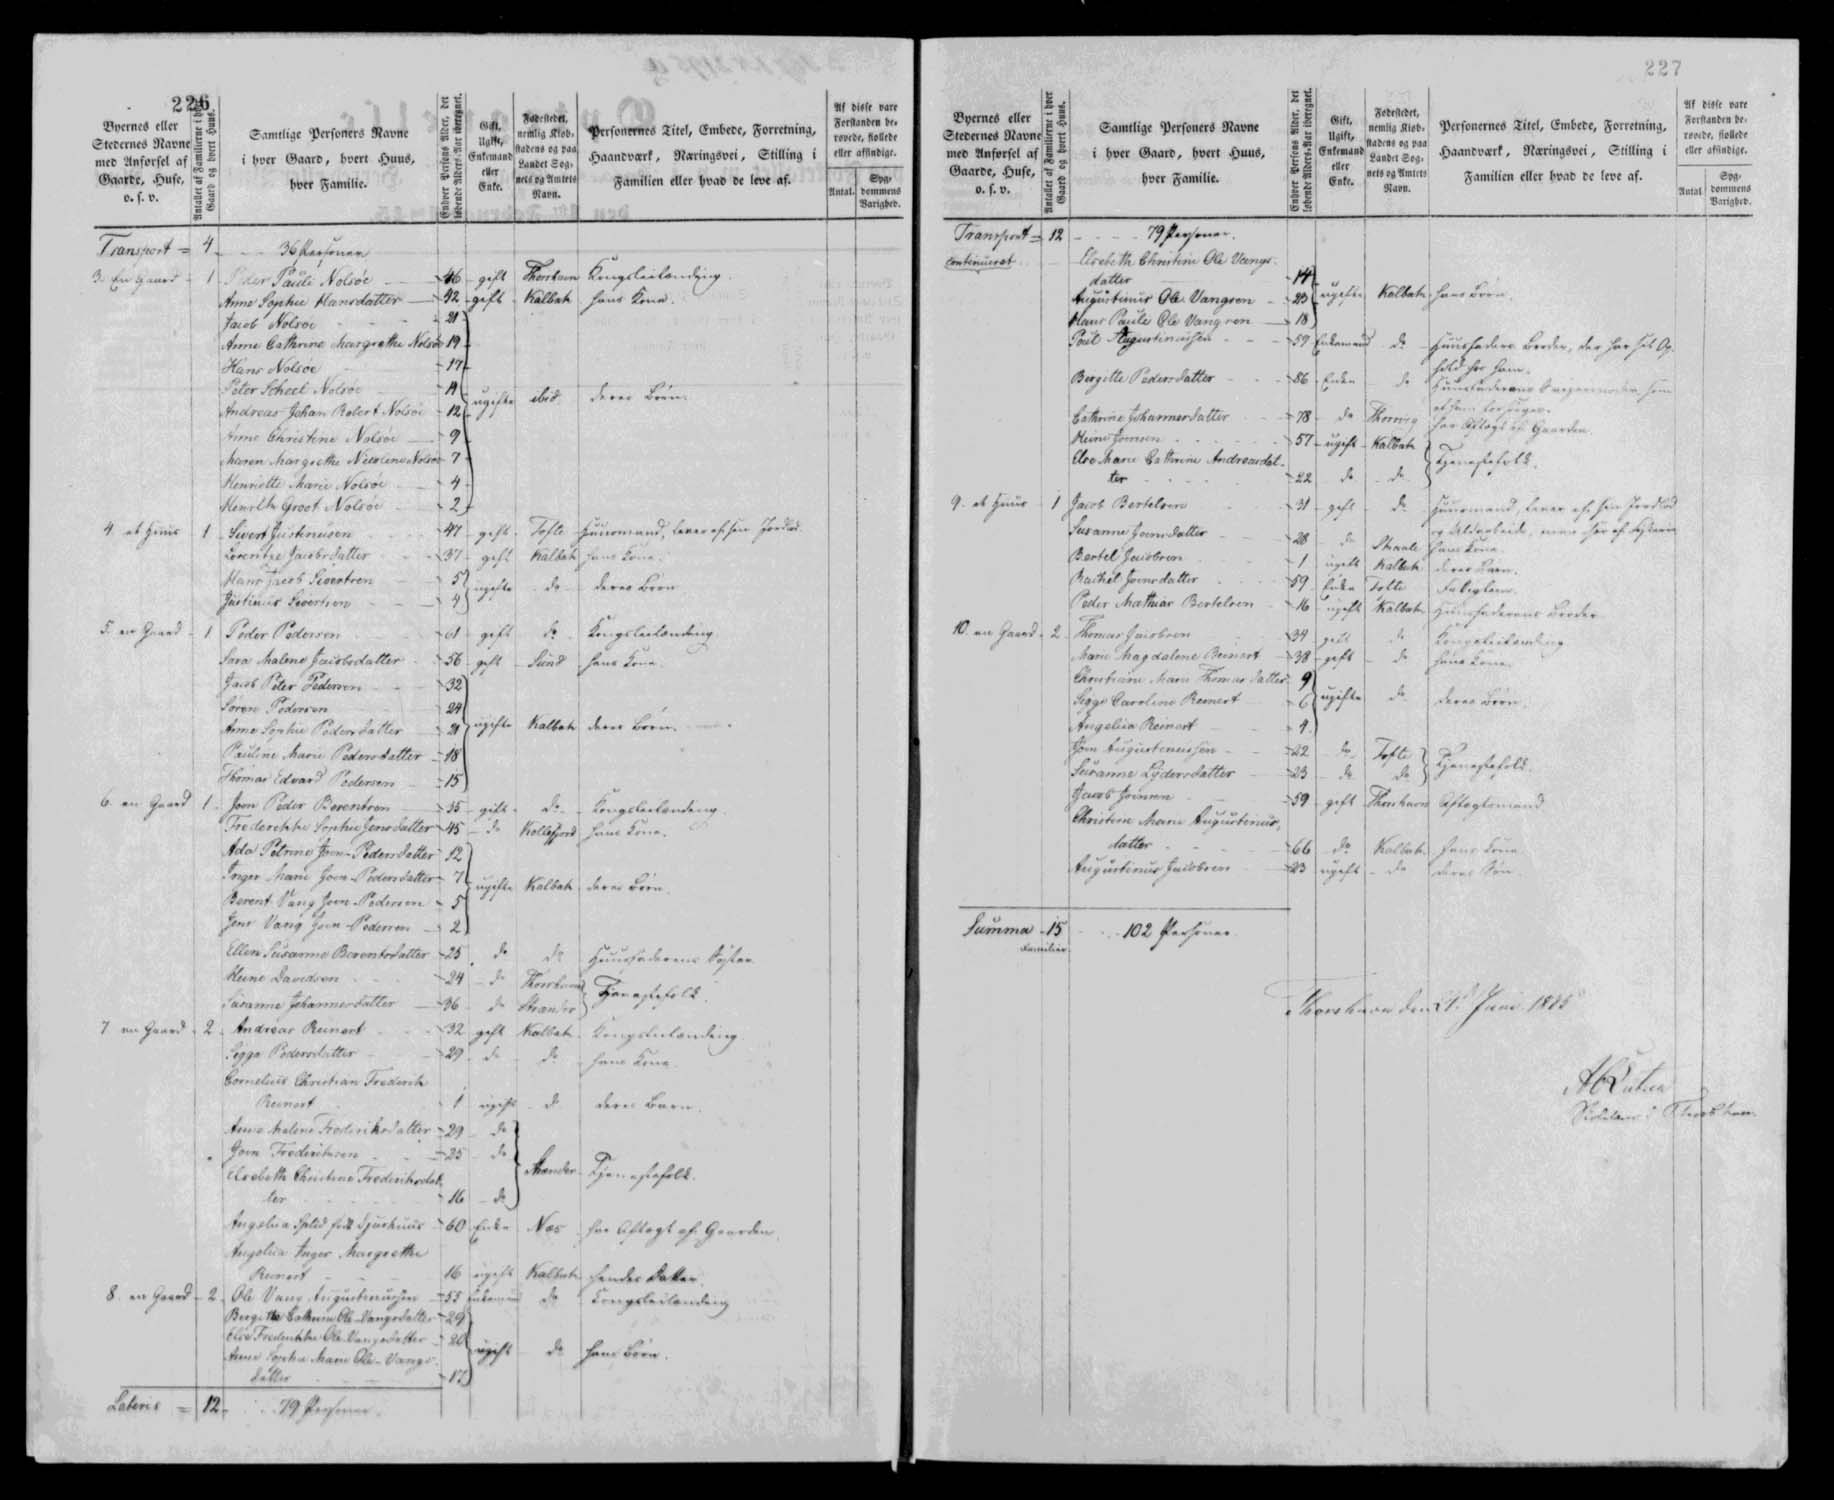 226
Byernes eller Stedernes Navne med Anførsel af Gaarde, Huse, o. s. v.
Antallet af Familierne i hver Gaard og hvert Huus.
Samtlige Personers Navne i hver Gaard, hvert Huus, hver Familie.
Enhver Persons Alder, det løbende Alders-Aar iberegnet.
Gift, Ugift, Enkemand eller Enke.
Fødestedet, nemlig Kiøbstadens og paa Landet Sognets og Amtets Navn.
Personernes Titel, Embede, Forretning, Haandværk, Næringsvei, Stilling i Familien eller hvad de leve af.
Af disse vare Forstanden berøvede, fjollede eller afsindige.
Antal.
Sygdommens Varighed.
Transport = 4 36 Personer
3. En Gaard 1 Peder Pauli Nolsøe 46 gift Thorshavn Kongsleilænding.
Anne Sophie Hansdatter 42 gift Kalbak hans Kone.
Jacob Nolsøe 21
Anne Cathrine Margrethe Nolsøe 19
Hans Nolsøe 17
Peter Scheel Nolsøe 14 ugifte ibid deres Børn.
Andreas Johan Robert Nolsøe 12
Anne Christine Nolsøe 9
Maren Margrethe Nicoline Nolsøe 7
Henriette Marie Nolsøe 4
Henrik Groot Nolsøe 2
4. et Huus 1 Sivert Justinusen 47 gift Tofte Huusmand, lever af sin Jordlod.
Lorentze Jacobsdatter 37 gift Kalbak hans Kone.
Hans Jacob Sivertsen 5 ugifte do deres Børn
Justinus Sivertsen 4
5. en Gaard 1 Peder Pedersen 61 gift do Kongsleilænding
Sara Malene Jacobsdatter 56 gift Sund hans Kone.
Jacob Peter Pedersen 32
Søren Pedersen 24
Anne Sophie Pedersdatter 21 ugifte Kalbak deres Børn.
Pauline Marie Pedersdatter 18
Thomas Edvard Pedersen 15
6. en Gaard 1 Joen Peder Berentsen 35 gift do Kongsleilænding.
Frederikke Sophie Jensdatter 45 do Kollefjord hans Kone.
Ada Petrine Joen-Pedersdatter 12
Inger Marie Joen-Pedersdatter 7 ugifte Kalbak deres Børn.
Berent Vang Joen-Pedersen 5
Jens Vang Joen-Pedersen 2
Ellen Susanne Berentsdatter 25 do do Huusfaderens Søster
Heine Davidsen 24 do Thorshavn Tjenestefolk.
Susanne Johannesdatter 36 do Strander
7. en Gaard 2 Andreas Reinert 32 gift Kalbak Kongsleilænding
Sigga Pedersdatter 29 do do hans Kone
Cornelius Christian Frederik
Reinert 1 ugift do deres Barn.
Anne Malene Frederiksdatter 29 do
Joen Frederiksen 25 do Strander Tjenestefolk.
Elsebeth Christine Frederiksdat-
ter 16 do
Angelica født Djurhuus 60 Enke Næs har Aftægt af Gaarden.
Angelica Inger Margrethe
Reinert 16 ugift Kalbak hendes Datter.
8. en Gaard 2 Ole Vang Augustinussen 55 Enkemand do Kongsleilænding
Bergitte Cathrine Ole-Vangsdatter 29
Else Frederikke Ole-Vangsdatter 20 ugift do hans Børn.
Anne Sophie Marie Ole-Vangs-
datter 17
Lateris = 12 79 Personer.
227
Byernes eller Stedernes Navne med Anførsel af Gaarde, Huse, o. s. v.
Antallet af Familierne i hver Gaard og hvert Huus.
Samtlige Personers Navne i hver Gaard, hvert Huus, hver Familie.
Enhver Persons Alder, det løbende Alders-Aar iberegnet.
Gift, Ugift, Enkemand eller Enke.
Fødestedet, nemlig Kiøbstadens og paa Landet Sognets og Amtets Navn.
Personernes Titel, Embede, Forretning, Haandværk, Næringsvei, Stilling i Familien eller hvad de leve af.
Af disse vare Forstanden berøvede, fjollede eller afsindige.
Antal
Sygdommens Varighed.
Transport = 12 79 Personer.
Continueret Elsebeth Christine Ole Vangs-
datter 14
Augustinus Ole Vangsen 23 ugifte Kalbak hans Børn.
Hans Paule Ole Vangsen 18
Poul Augustinussen 59 Enkemand do Huusfaders Broder, der har sit Op-
hold hos ham.
Bergitte Pedersdatter 86 Enke do Huusfaderens Svigermoder som
af ham forsørges.
Cathrine Johannesdatter 78 do Thorsvig har Aftægt af Gaarden.
Heine Joensen 57 ugift Kalbak Tjenestefolk.
Else Marie Cathrine Andreasdat-
ter 22 do do
9. et Huus 1 Jacob Bertelsen 31 gift do Huusmand, lever af sin Jordlod
Susanne Joensdatter 28 do hans Kone
Bertel Jacobsen 1 ugift Kalbak deres Barn.
Rachel Joensdatter 59 Enke Tofte
Peder Mathias Bertelsen 16 ugift Kalbak Huusfaderens Broder
10. en Gaard 2 Thomas Jacobsen 34 gift do Kongsleilænding
Marie Magdalene Reinert 38 gift do hans Kone.
Christiane Marie Thomasdatter 9
Sigge Caroline Reinert 6 ugifte do deres Børn
Angelica Reinert 4
Joen Augustinussen 22 do Tofte Tjenestefolk.
Susanne Lydersdatter 23 do do
Jacob Joensen 59 gift Thorshavn Aftægtsmand
Christine Marie Augustinus-
datter 66 do Kalbak hans Kone
Augustinus Jacobsen 23 ugift do deres Søn
Summa 15 102 Personer
Familier
Thorshavn den Juni 1845
i Thorshavn